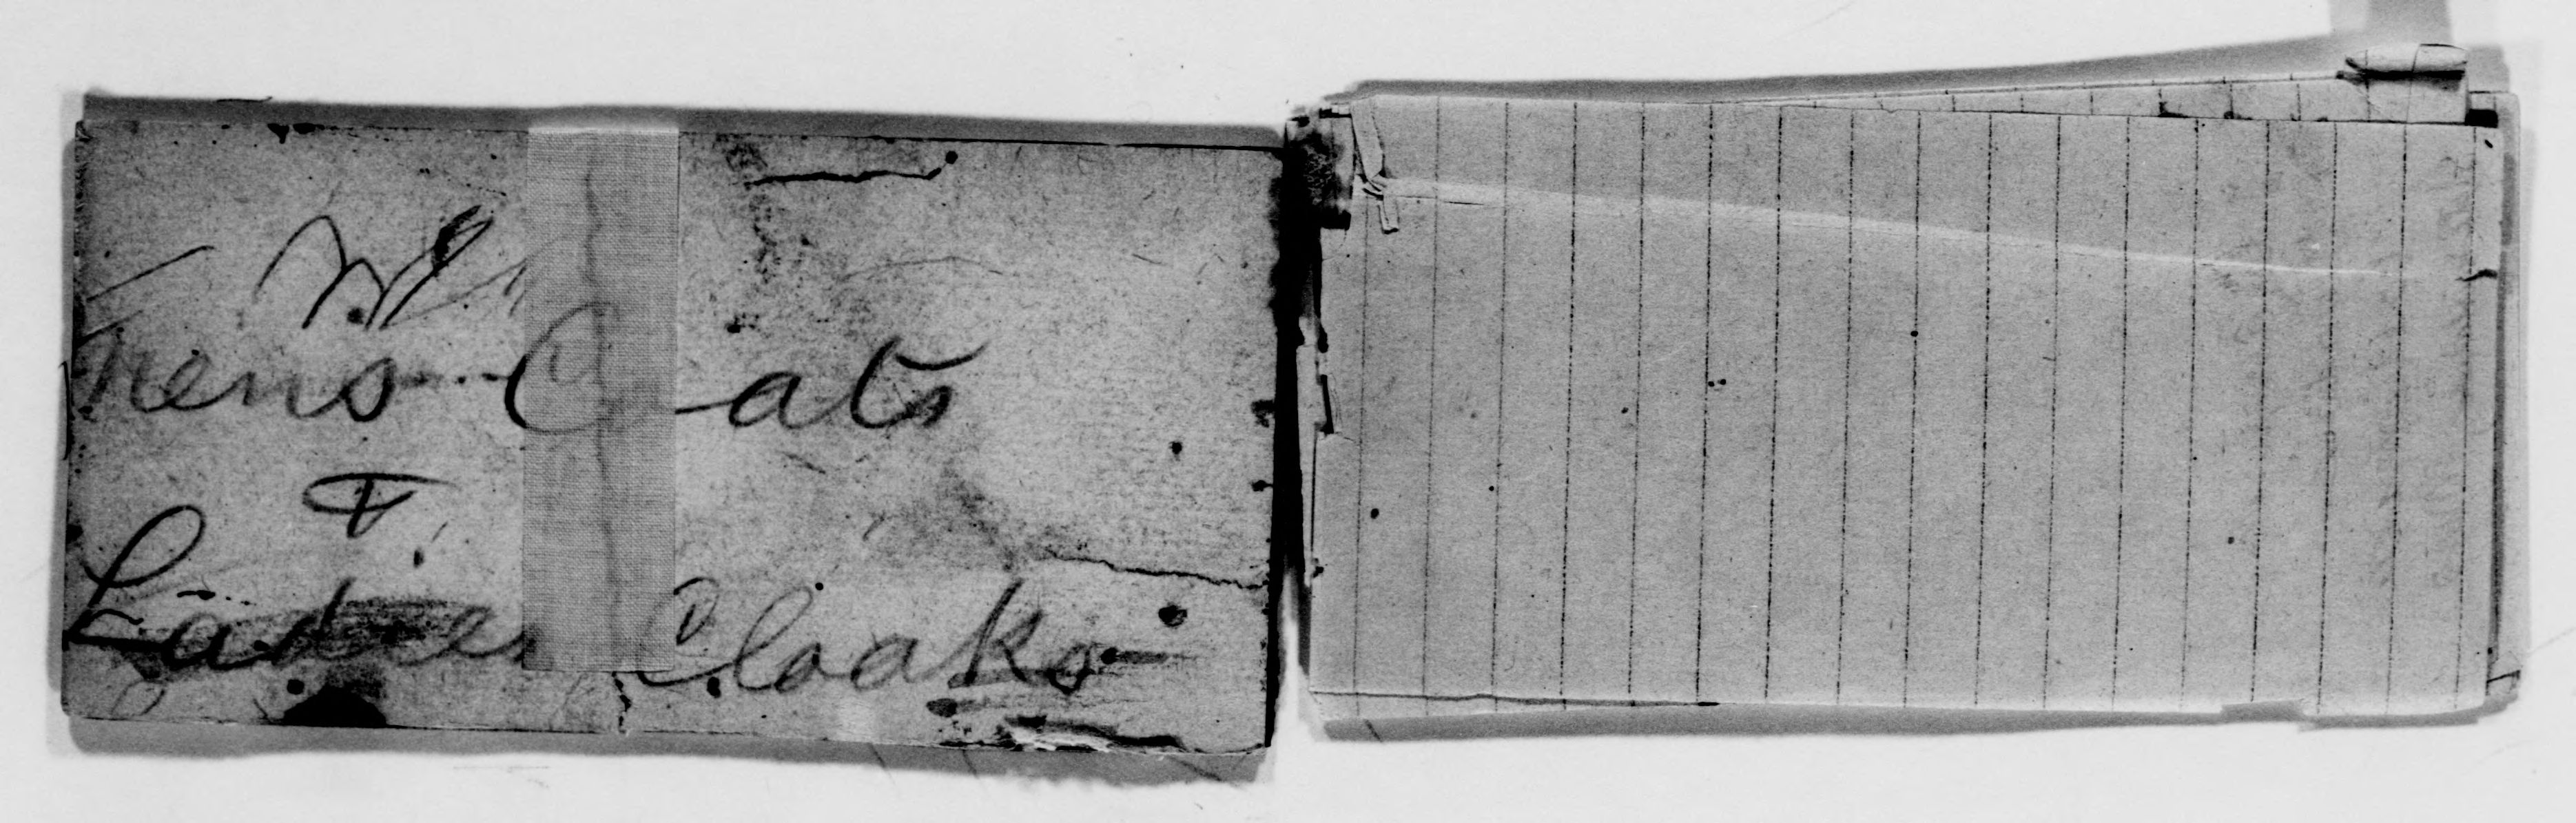 mens Coats
&
Ladies Cloaks